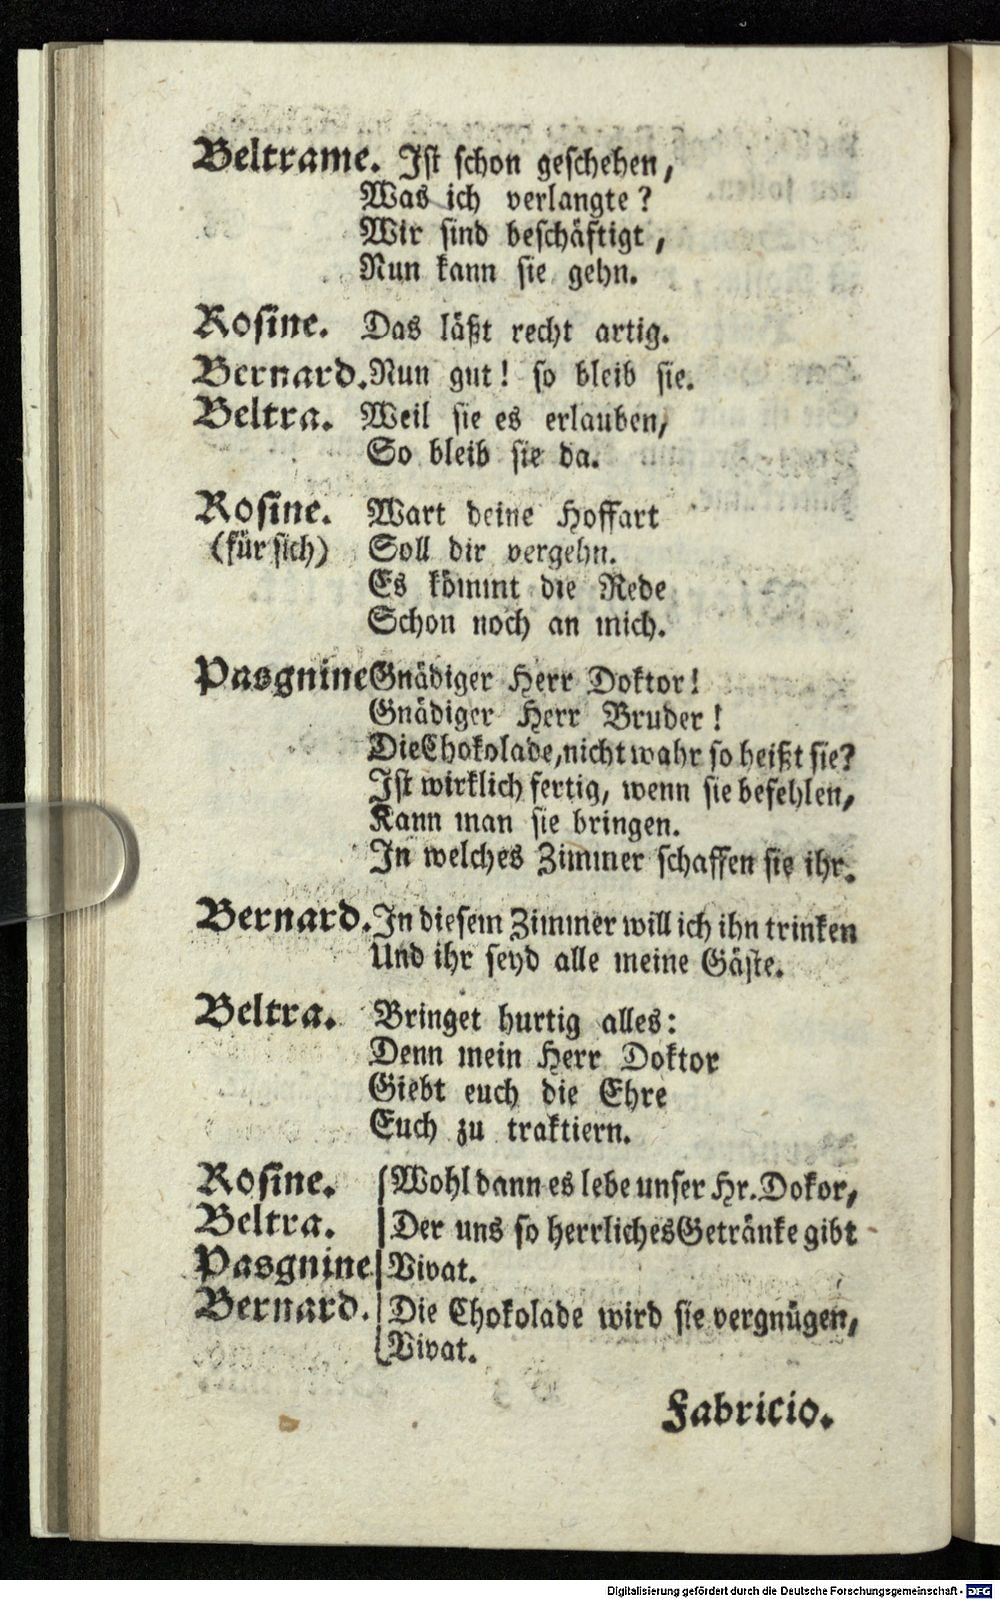 Beltrame. Ist schon geschehen,
Was ich verlangte?
Wir sind beschäftigt,
Nun kann sie gehn.
Rosine. Das läßt recht artig.
Bernard. Nun gut! so bleib sie.
Beltra. Weil sie es erlauben,
So bleib sie da.
Rosine. Wart deine Hoffart
(für sich) Soll dir vergehn.
Es kömmt die Rede
Schon noch an mich.
Pasgnine Gnädiger Herr Doktor!
Gnädiger Herr Bruder!
Die Chokolade, nicht wahr so heißt sie?
Ist wirklich fertig, wenn sie befehlen,
Kann man sie bringen.
In welches Zimmer schaffen sie ihr.
Bernard. In diesem Zimmer will ich ihn trinken
Und ihr seyd alle meine Gäste.
Beltra. Bringet hurtig alles:
Denn mein Herr Doktor
Giebt euch die Ehre
Euch zu traktiern.
Rosine. Wohl dann es lebe unser Hr. Dokor,
Beltra. Der uns so herrliches Getränke gibt
Pasgnine Vivat.
Bernard. Die Chokolade wird sie vergnügen,
Vivat.
Fabricio.
Digitalisierung gefördert durch die Deutsche Forschungsgemeinschaft - DFG